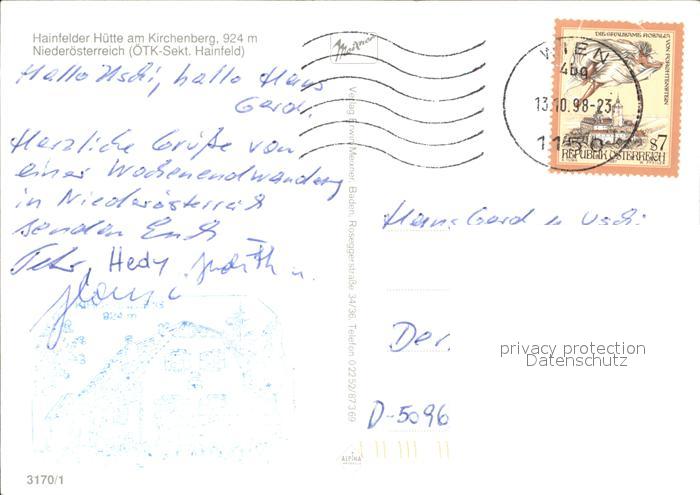 Hainfelder Hütte am Kirchenberg, 924 m
Niederösterreich (ÖTK-Sekt. Hainfeld)
Hallo Uschi, hallo Hans
Gerd,
Herzliche Grüße von
einer Wochenendwanderung
in Niederösterreich
senden Euch
Peter, Hedy, Judith u.
924 m
3170/1
Verlag Erwin Mexner, Baden, Roseggerstraße 34/36, Telefon 02252/87369
ALPINA
WIEN
13.10.98-23
1150
DIE GRAUSAME ROSALIA VON FORCHTENSTEIN
S7
REPUBLIK ÖSTERREICH
Hans Gerd u Uschi
Der.
D-5096
privacy protection
Datenschutz